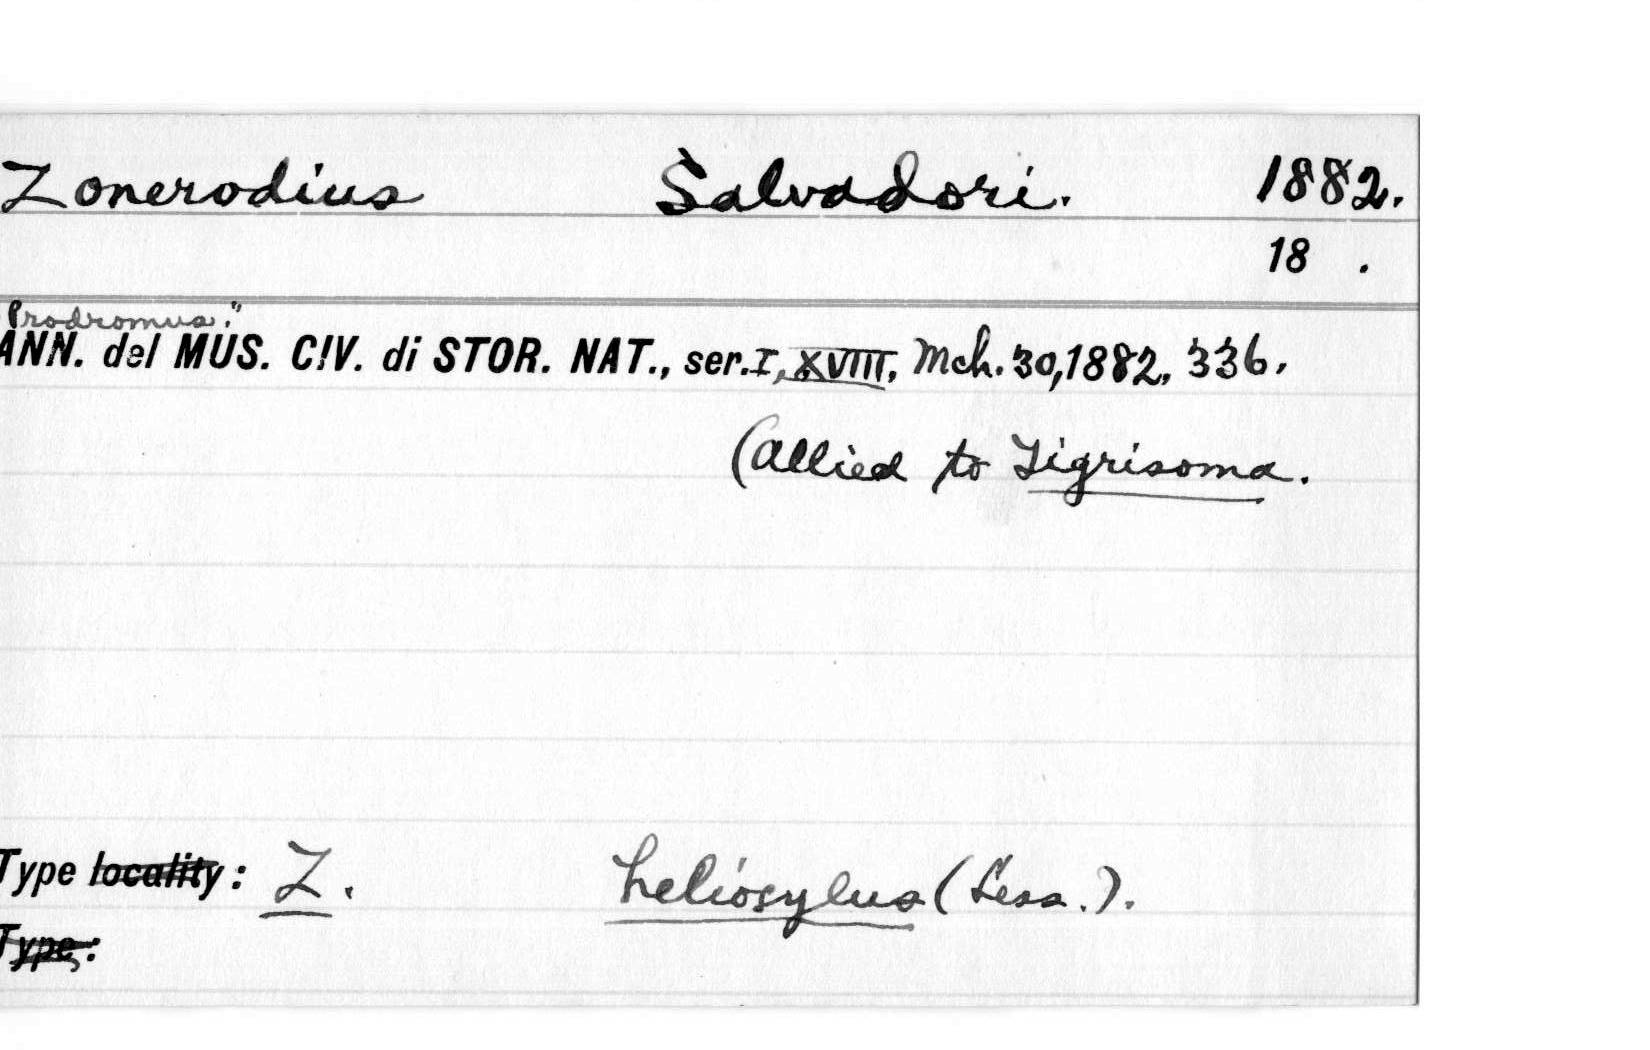 Zonerodius Salvadori. 1882.
18 .
Prodromus."
ANN. del MUS. CIV. di STOR. NAT., ser. I, XVIII, Mch. 30, 1882, 336.
(Allied to Tigrisoma.
Type locality: Z. heliosylus (Less.).
Type: